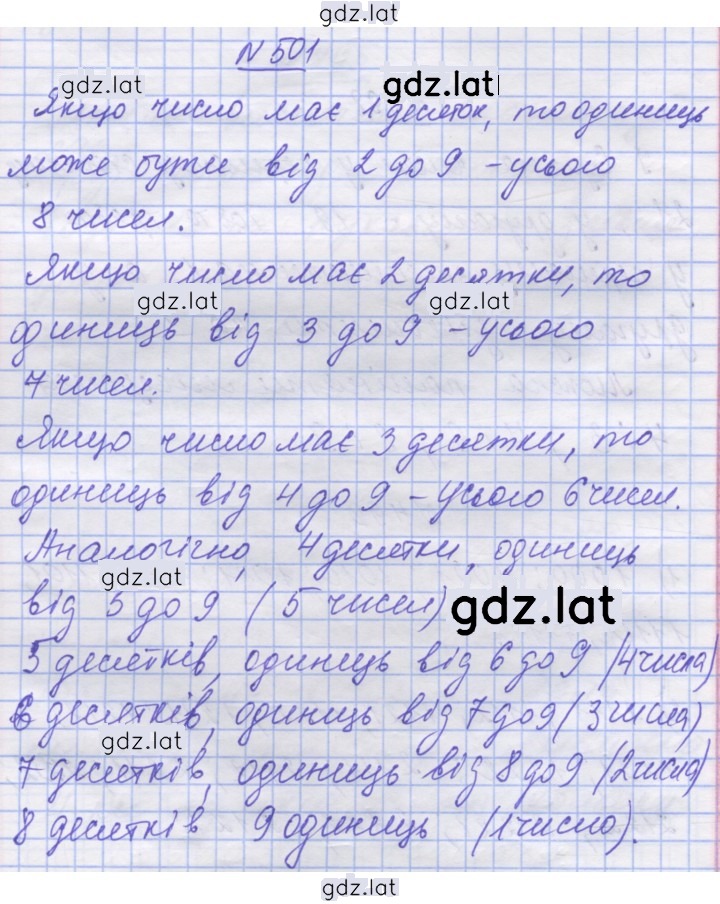 gdz.lat
N 501
gdz.lat gdz.lat
Якщо число має 1 десяток, то одиниць
може бути від 2 до 9 – усього
8 чисел.
Якщо число має 2 десятки, то
gdz.lat gdz.lat
одиниць від 3 до 9 – усього
7 чисел.
Якщо число має 3 десятки, то
одиниць від 4 до 9 – усього 6 чисел.
Аналогічно, 4 десятки, одиниць
gdz.lat
від 5 до 9 (5 чисел)
gdz.lat
5 десятків, одиниць від 6 до 9 (4 числа)
6 десятків, одиниць від 7 до 9 (3 числа)
gdz.lat gdz.lat
7 десятків, одиниць від 8 до 9 (2 числа)
8 десятків 9 одиниць (1 число).
gdz.lat